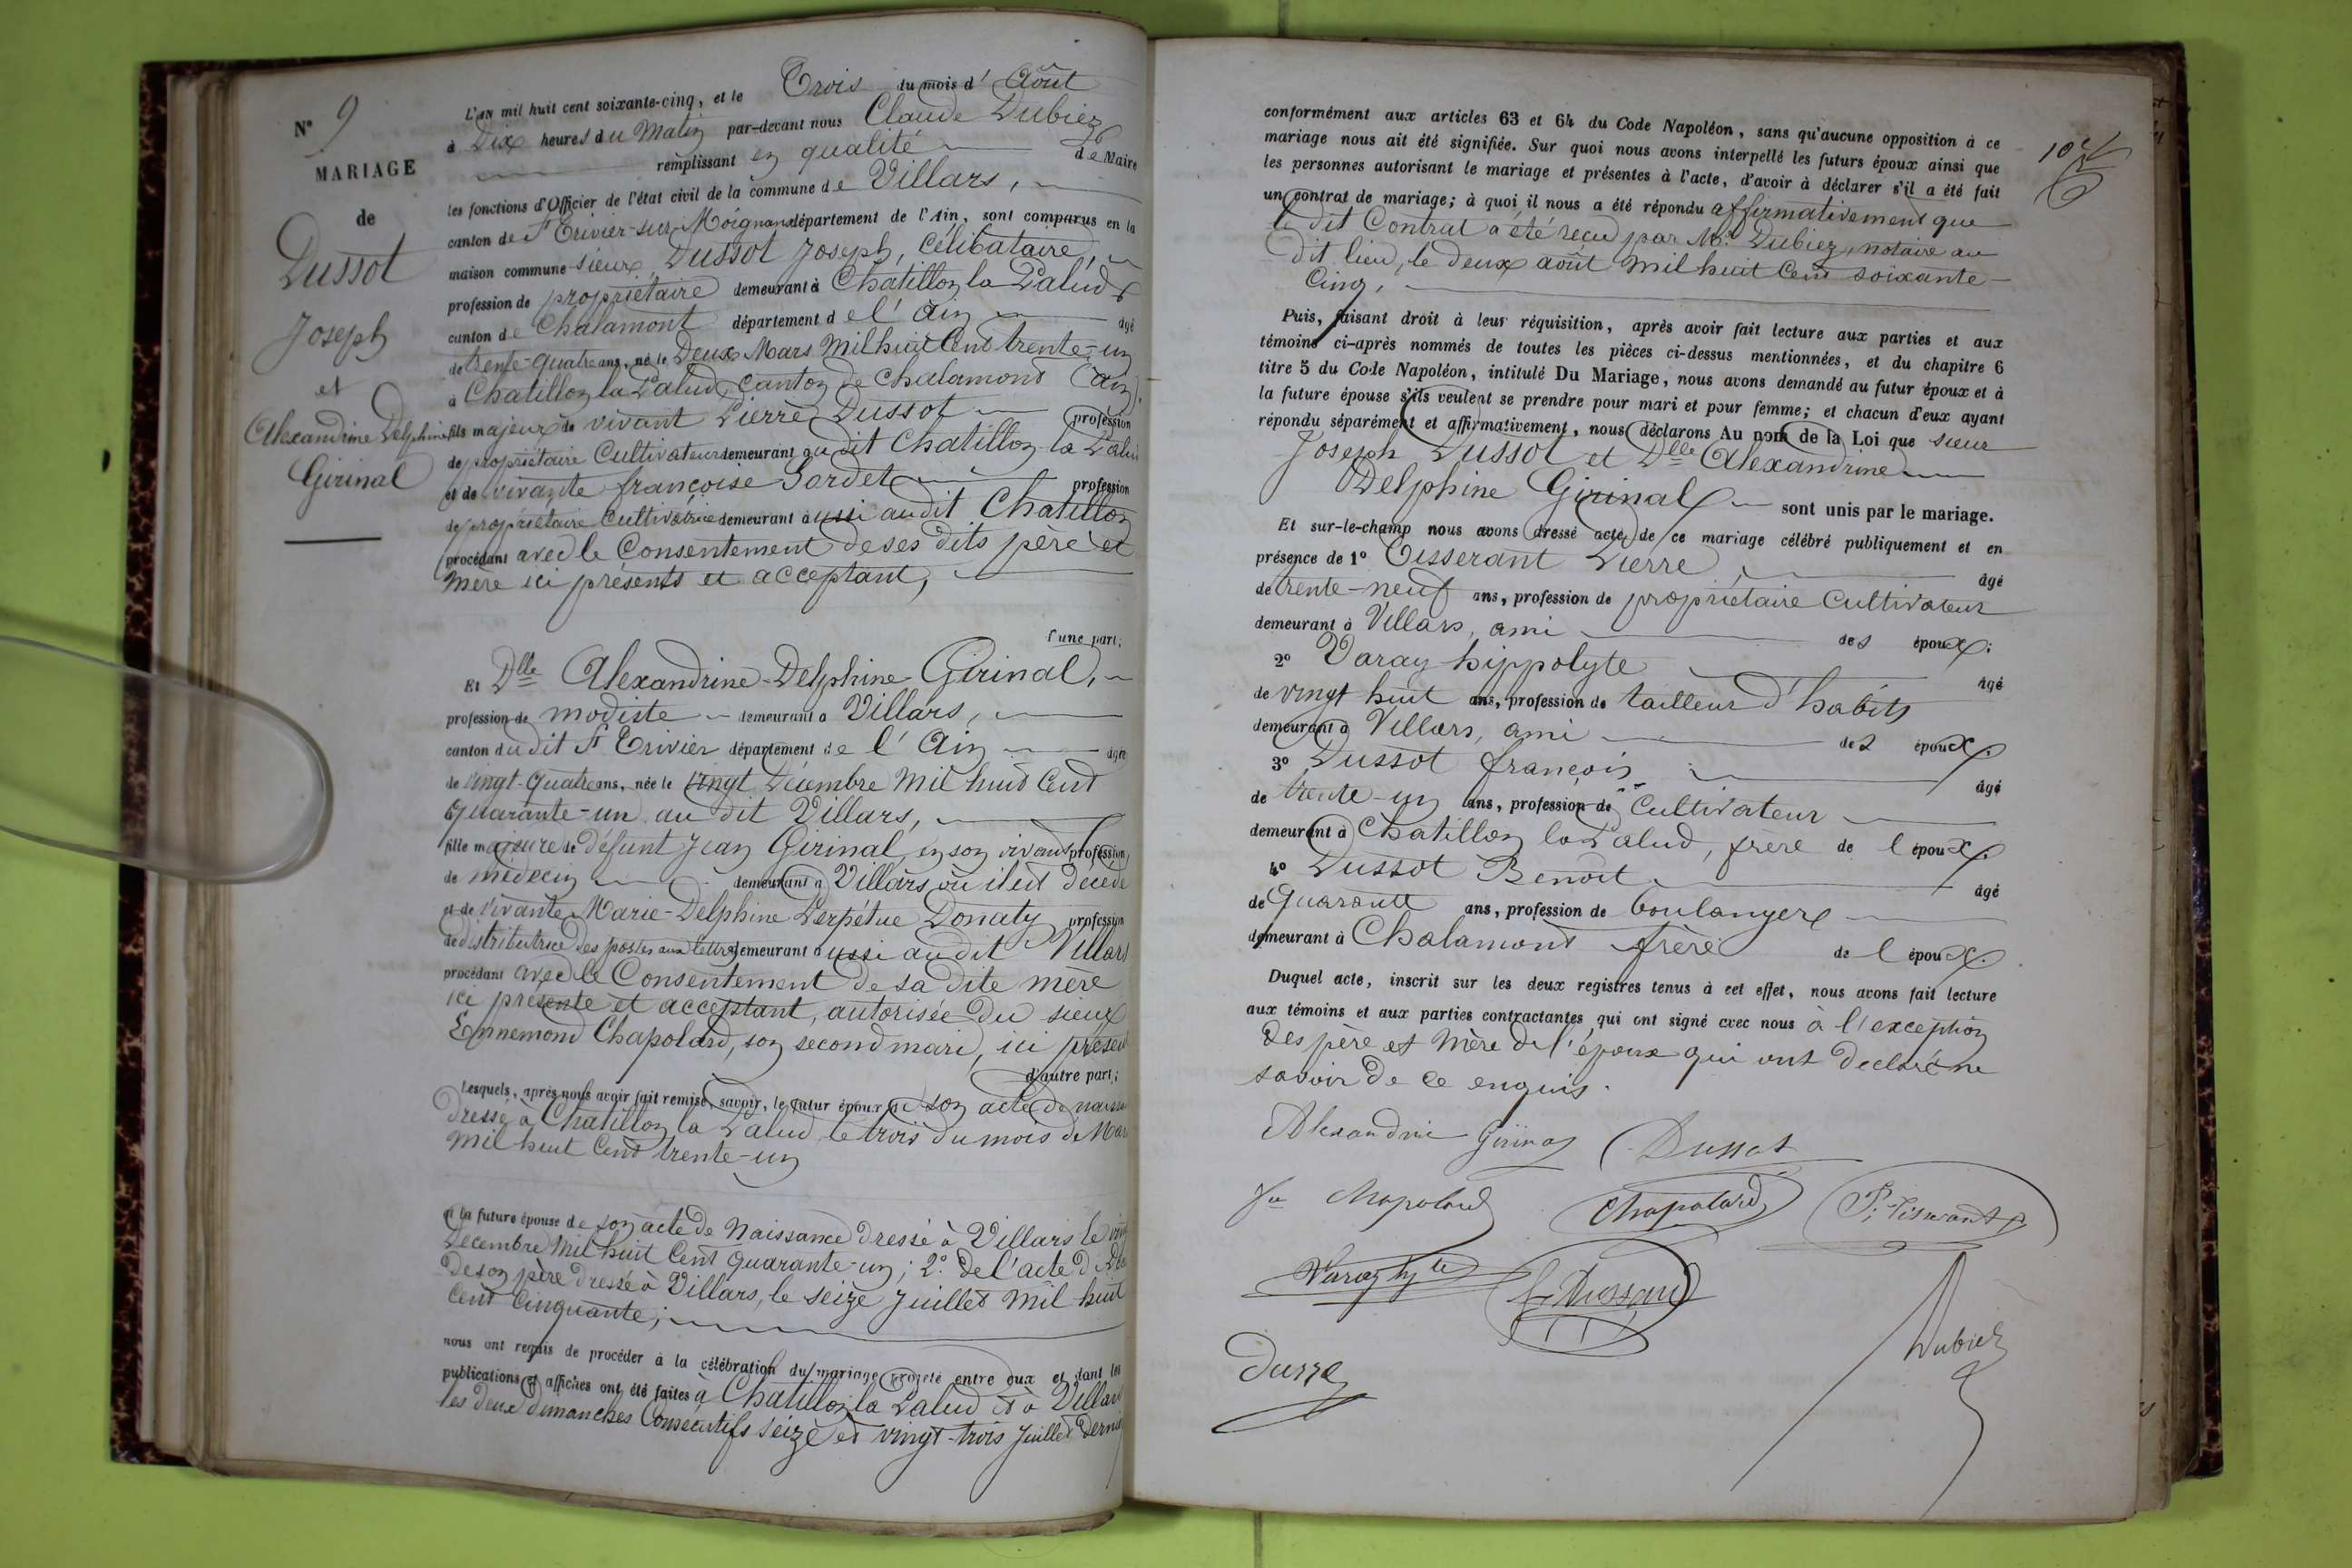 N° 9
MARIAGE
de
Dussot
Joseph
et
Alexandrine Delphine
Girinal
L'AN mil huit cent soixante-cinq, et le Trois du mois d'Août
à Dix heures du Matin par-devant nous Claude Dubiez
remplissant en qualité de Maire
les fonctions d'Officier de l'état civil de la commune de Villars,
canton de St Trivier-sur-Moignans département de l'Ain, sont comparus en la
maison commune sieur Dussot Joseph, célibataire,
profession de propriétaire demeurant à Chatillon la Palud
canton de Chalamont département de l'Ain âgé
de trente-quatre ans, né le Deux Mars Mil huit Cent trente-un
à Chatillon la Palud, canton de Chalamont (Ain)
fils majeur de vivant Pierre Dussot profession
de propriétaire Cultivateur demeurant au dit Chatillon la Palud
et de vivante françoise Sordet profession
de propriétaire Cultivatrice demeurant aussi audit Chatillon
procédant avec le Consentement de ses dits père et
mère ici présents et acceptant,
d'une part;
Et Dlle Alexandrine-Delphine Girinal,
profession de modiste demeurant à Villars,
canton du dit St Trivier département de l'Ain âgée
de vingt-quatre ans, née le vingt Décembre Mil huit Cent
Quarante-un au dit Villars,
fille majeure de défunt Jean Girinal, en son vivant profession
de médecin demeurant à Villars où il est décédé
et de vivante Marie-Delphine Perpétue Donaty profession
de distributrice des postes aux lettres demeurant aussi audit Villars
procédant avec le Consentement de sa dite mère
ici présente et acceptant, autorisée du sieur
Ennemond Chapolard, son second mari, ici présent
d'autre part;
Lesquels, après nous avoir fait remise, savoir, le futur époux de son acte de naiss
dressé à Chatillon la Palud, le trois du mois de Mars
Mil huit Cent trente-un
et la future épouse de son acte de Naissance dressé à Villars le vingt
Décembre Mil huit Cent quarante-un; 2° de l'acte de Déc
de son père dressé à Villars, le seize Juillet Mil huit
Cent Cinquante;
nous ont requis de procéder à la célébration du mariage projeté entre eux et dont les
publications et affiches ont été faites à Chatillon la Palud et à Villars
les deux dimanches Consécutifs seize et vingt-trois Juillet dernier
conformément aux articles 63 et 64 du Code Napoléon, sans qu'aucune opposition à ce
mariage nous ait été signifiée. Sur quoi nous avons interpellé les futurs époux ainsi que
les personnes autorisant le mariage et présentes à l'acte, d'avoir à déclarer s'il a été fait
un contrat de mariage; à quoi il nous a été répondu affirmativement que
le dit Contrat a été reçu par Me Dubiez, notaire au
dit lieu, le deux août Mil huit Cent soixante-
Cinq,
Puis, faisant droit à leur réquisition, après avoir fait lecture aux parties et aux
témoins ci-après nommés de toutes les pièces ci-dessus mentionnées, et du chapitre 6
titre 5 du Code Napoléon, intitulé Du Mariage, nous avons demandé au futur époux et à
la future épouse s'ils veulent se prendre pour mari et pour femme; et chacun d'eux ayant
répondu séparément et affirmativement, nous déclarons Au nom de la Loi que sieur
Joseph Dussot et Dlle Alexandrine
Delphine Girinal sont unis par le mariage.
Et sur-le-champ nous avons dressé acte de ce mariage célébré publiquement et en
présence de 1° Tisserant Pierre, âgé
de trente-neuf ans, profession de propriétaire Cultivateur
demeurant à Villars, ami des époux;
2° Varay hippolyte âgé
de vingt huit ans, profession de tailleur d'habits
demeurant à Villars, ami des époux.
3° Dussot françois âgé
de trente-un ans, profession de Cultivateur
demeurant à Chatillon la Palud, frère de l'époux.
4° Dussot Benoît âgé
de Quarante ans, profession de boulanger
demeurant à Chalamont frère de l'époux.
Duquel acte, inscrit sur les deux registres tenus à cet effet, nous avons fait lecture
aux témoins et aux parties contractantes qui ont signé avec nous à l'exception
des père et Mère de l'époux qui ont declaré ne
savoir de ce enquis.
Alexandrine Girinal Dussot
fe Chapolard Chapolard P. Tisserant
Varay hyte f. Dussot
Dubiez